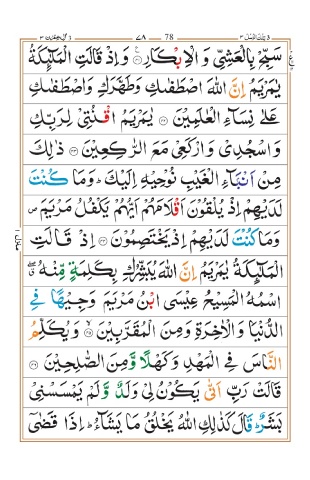 تلك الرسل ٣ ٧٨ 78 ال عمرٰن ٣
سَبِّحْ بِالْعَشِيِّ وَ الْاِبْكَارِ ۝٤١ وَ اِذْ قَالَتِ الْمَلٰٓئِكَةُ
يٰمَرْيَمُ اِنَّ اللّٰهَ اصْطَفٰىكِ وَ طَهَّرَكِ وَ اصْطَفٰىكِ
عَلٰى نِسَآءِ الْعٰلَمِيْنَ ۝٤٢ يٰمَرْيَمُ اقْنُتِيْ لِرَبِّكِ
وَ اسْجُدِيْ وَ ارْكَعِيْ مَعَ الرّٰكِعِيْنَ ۝٤٣ ذٰلِكَ
مِنْ اَنْۢبَآءِ الْغَيْبِ نُوْحِيْهِ اِلَيْكَ ؕ وَمَا كُنْتَ
لَدَيْهِمْ اِذْ يُلْقُوْنَ اَقْلَامَهُمْ اَيُّهُمْ يَكْفُلُ مَرْيَمَ ۪
وَمَا كُنْتَ لَدَيْهِمْ اِذْ يَخْتَصِمُوْنَ ۝٤٤ اِذْ قَالَتِ
الْمَلٰٓئِكَةُ يٰمَرْيَمُ اِنَّ اللّٰهَ يُبَشِّرُكِ بِكَلِمَةٍ مِّنْهُ ۖۗ
اسْمُهُ الْمَسِيْحُ عِيْسَى ابْنُ مَرْيَمَ وَجِيْهًا فِي
الدُّنْيَا وَ الْاٰخِرَةِ وَمِنَ الْمُقَرَّبِيْنَ ۝٤٥ وَ يُكَلِّمُ
النَّاسَ فِي الْمَهْدِ وَ كَهْلًا وَّمِنَ الصّٰلِحِيْنَ ۝٤٦
قَالَتْ رَبِّ اَنّٰى يَكُوْنُ لِيْ وَلَدٌ وَّ لَمْ يَمْسَسْنِيْ
بَشَرٌ ؕ قَالَ كَذٰلِكِ اللّٰهُ يَخْلُقُ مَا يَشَآءُ ؕ اِذَا قَضٰٓى